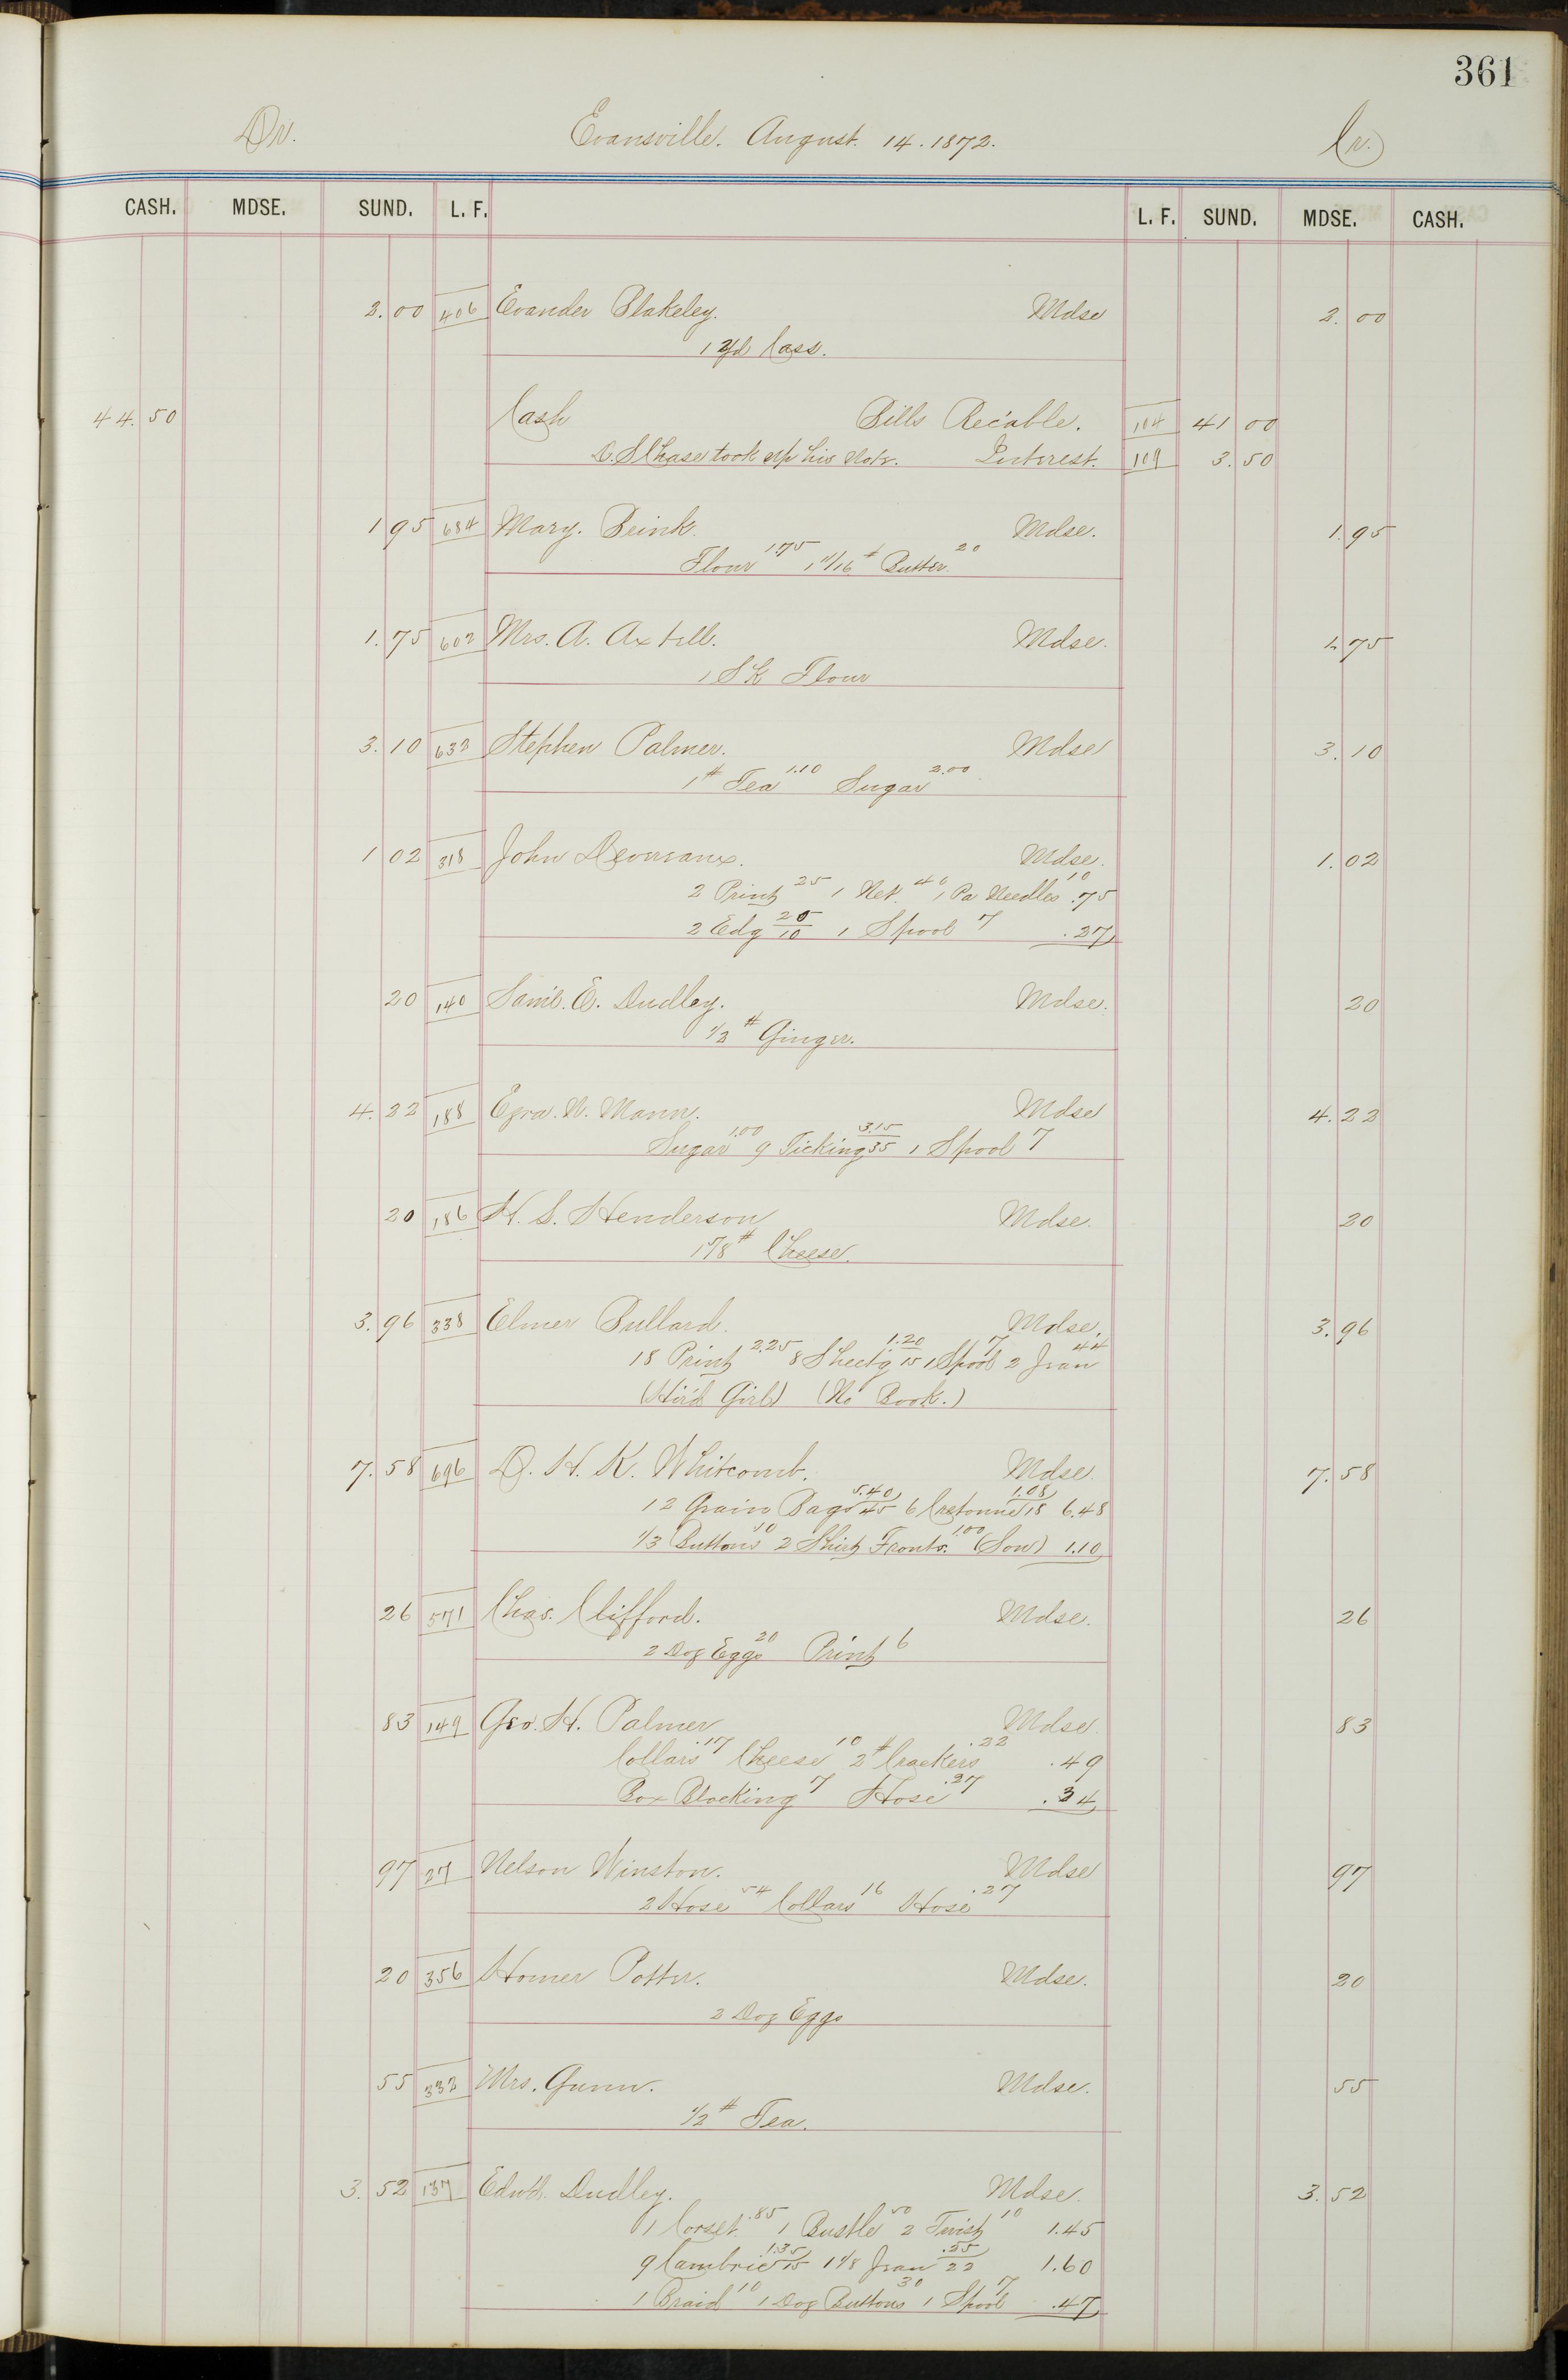 361
Dr. Evansville. August. 14. 1872. Cr.
CASH. MDSE. SUND. L. F. L. F. SUND. MDSE. CASH.
2.00 406 Evander Blakeley. Mdse 2.00
1 yd Cass.
44.50 Cash Bills Rec'able. 104 41 00
D. S Chase took up his Note. Interest. 109 3.50
1 95 684 Mary. Brink. Mdse. 1.95
Flour 1.75 1 11/16 # Butter. 20
1.75 602 Mrs. A. Axtell. Mdse. 1.75
1 Sk Flour
3.10 632 Stephen Palmer. Mdse 3.10
1 # Tea 1.10 Sugar 2.00
1 02 318 John Mdse. 1.02
2 Print 25 1 Net. 40 1 Pa Needles 10 .75
2 Edg 20/10 1 Spool 7 .27
20 140 Sam'l. E. Dudley. Mdse. 20
1/2 # Ginger.
4.22 188 Ezra. N. Mann. Mdse 4.22
Sugar 1.00 9 Ticking 3.15/35 1 Spool 7
20 186 H. S. Henderson Mdse. 20
1 5/8 # Cheese.
3.96 338 Elmer Bullard. Mdse. 3.96
18 Print 2.25 8 Sheet'g 1.20/15 1 Spool 7 2 Jean 44
(Hir'd Girl) (No Book.)
7.58 696 D. H. K. Whitcomb. Mdse. 7.58
12 Grain Bags 5.40/45 6 Cretonne 1.08/18 6.48
1/3 Buttons 10 2 Shirt Fronts. 1.00 (Son) 1.10
26 571 Chas. Clifford. Mdse. 26
2 Doz Eggs 20 Print 6
83 149 Geo. H. Palmer Mdse. 83
Collars .17 Cheese 10 2 # Crackers .22 .49
Box Blacking 7 Hose .27 .34
97 27 Nelson Winston. Mdse 97
2 Hose 54 Collars 16 Hose .27
20 356 Homer Potter. Mdse. 20
2 Doz Eggs
55 332 Mrs. Gunn. Mdse. 55
1/2 # Tea.
3.52 137 Edw'd. Dudley. Mdse. 3.52
1 Corset. .85 1 Bustle 50 2 Twist 10 1.45
9 Cambric 1.35/15 1 1/8 Jean .25/22 1.60
1 Braid 10 1 Doz Buttons 30 1 Spool 7 .47